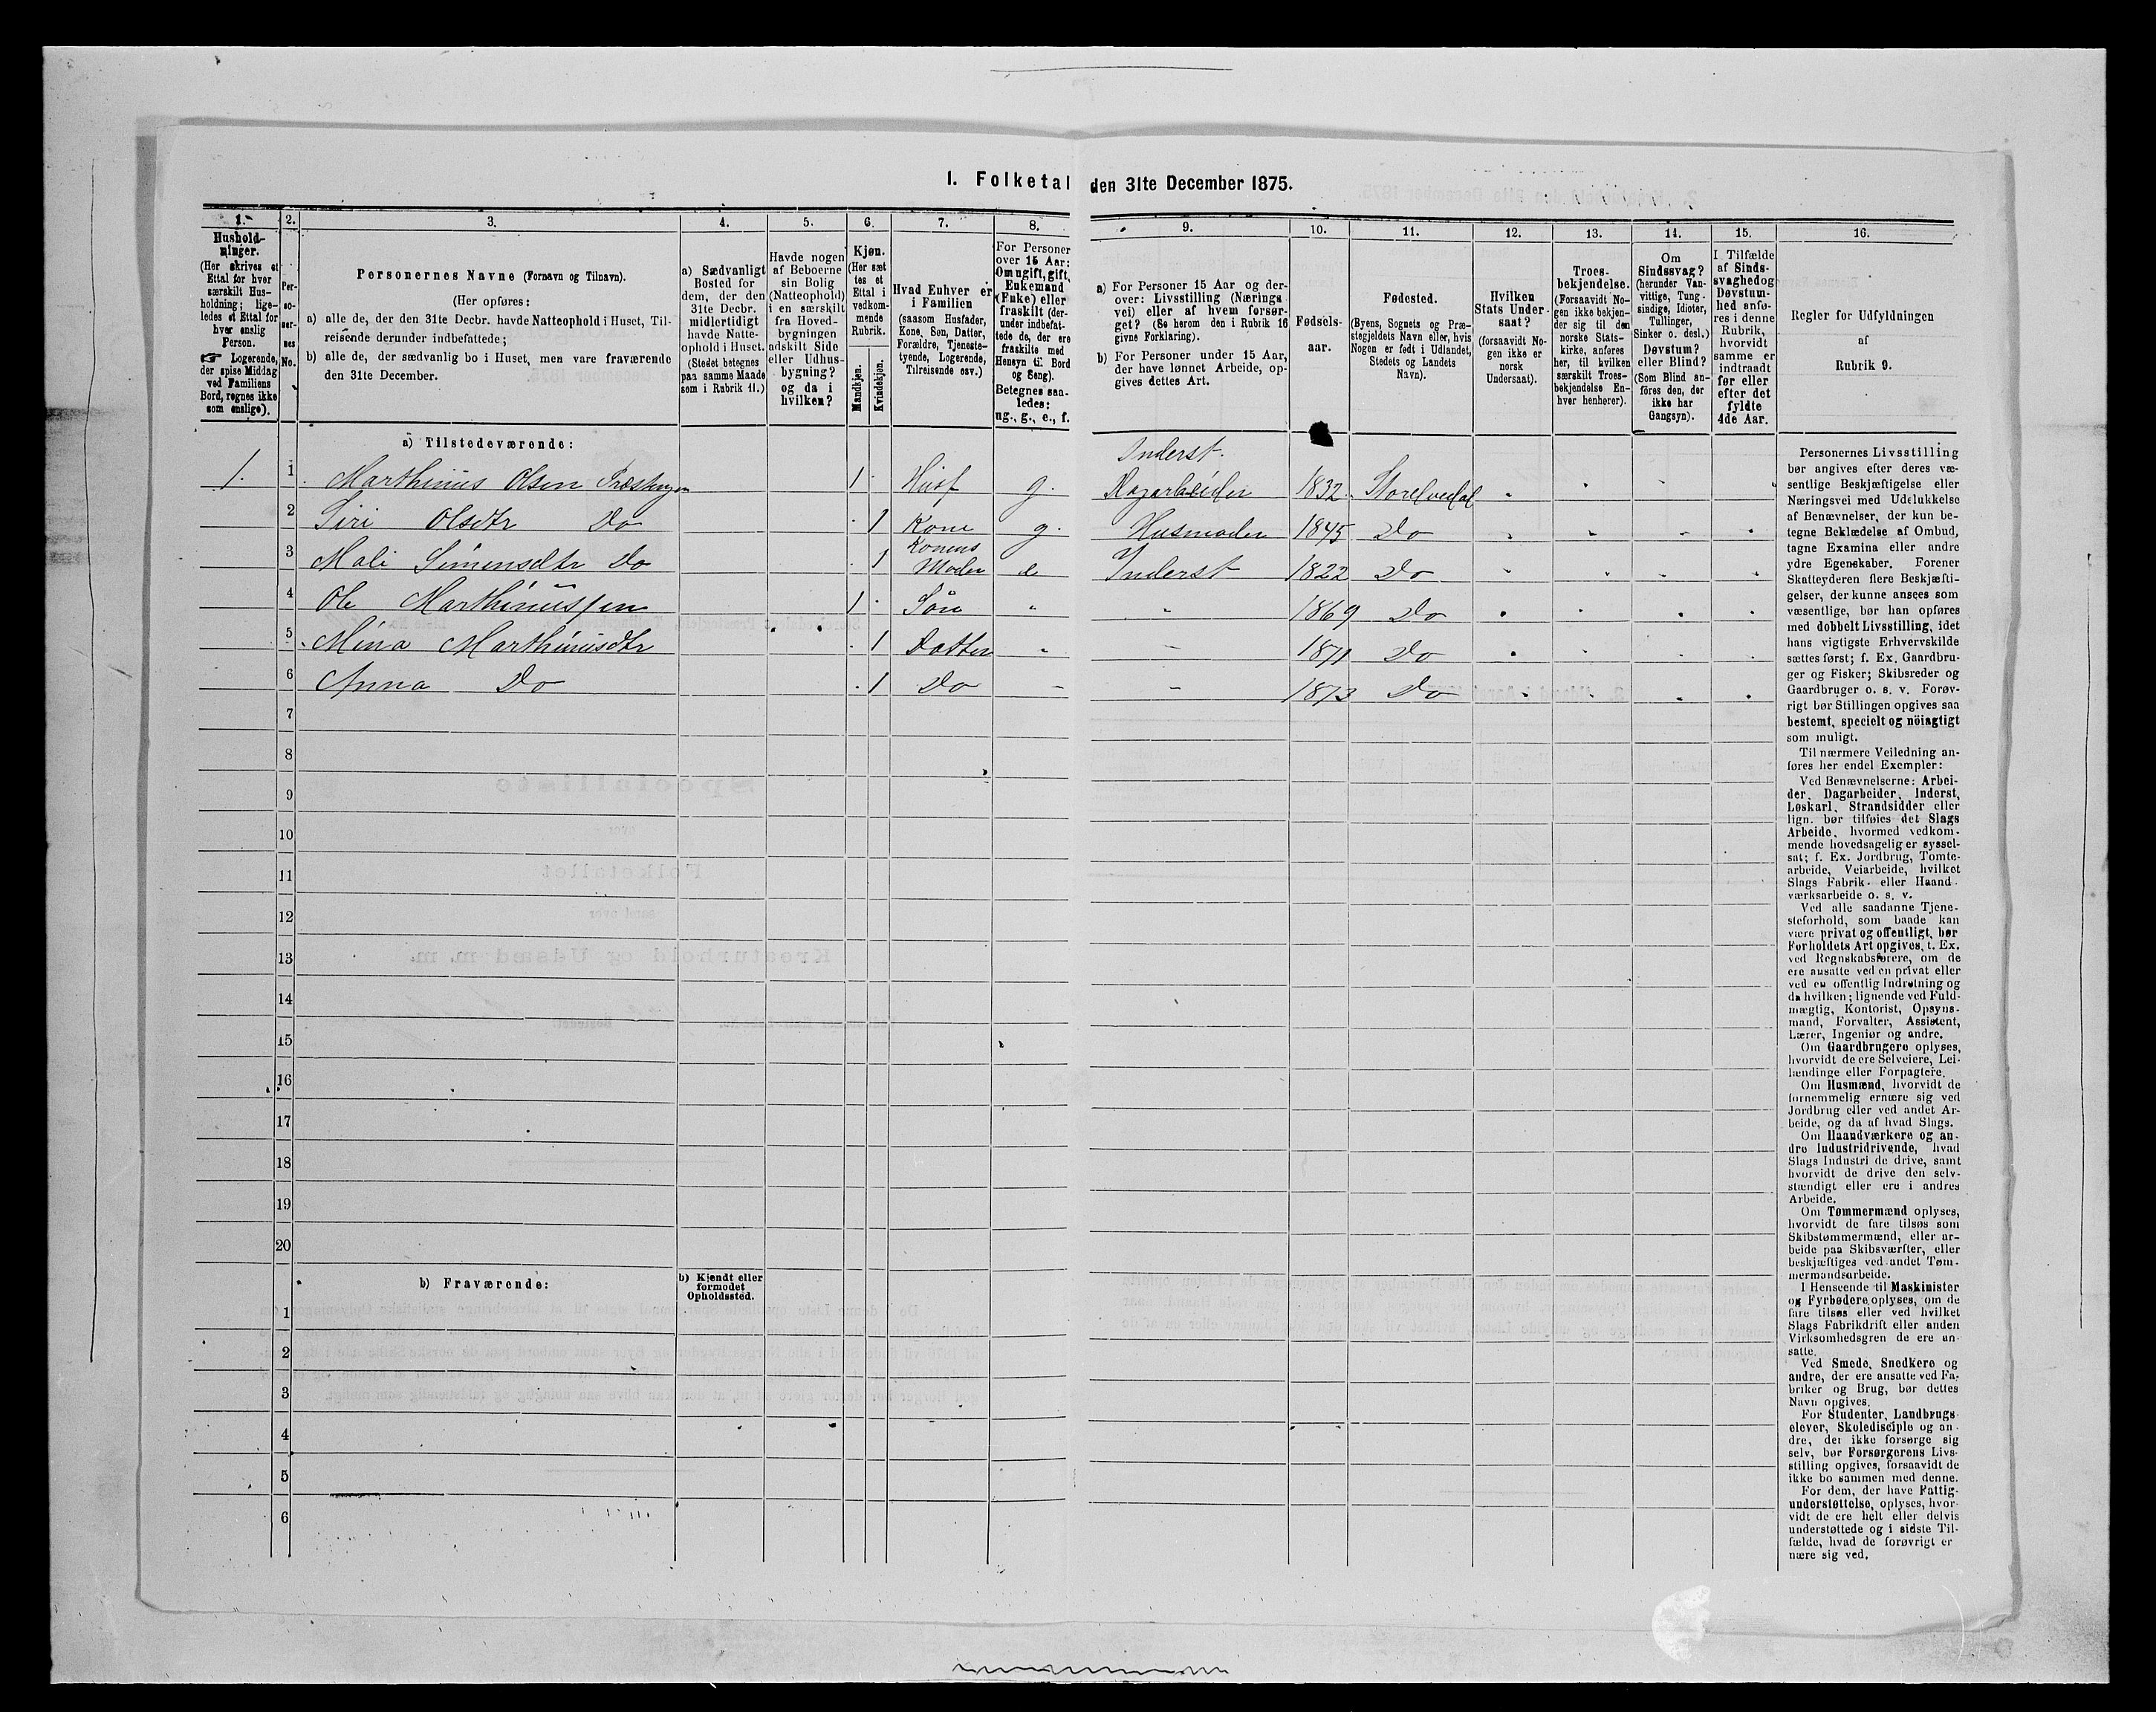 I. Folketal den 31te December 1875.
1.
Hushold-
ninger.
(Her skrives et
Ettal for hver
særskilt Hus-
holdning; lige-
ledes et Ettal for
hver enslig
Person.
☞ Logerende,
der spise Middag
ved Familiens
Bord, regnes ikke
som enslige).
2.
Per-
so-
ner-
nes
No.
3.
Personernes Navne (Fornavn og Tilnavn).
(Her opføres:
a) alle de, der den 31te Decbr. havde Natteophold i Huset, Til-
reisende derunder indbefattede;
b) alle de, der sædvanlig bo i Huset, men vare fraværende
den 31te December.
4.
a) Sædvanligt
Bosted for
dem, der den
31te Decbr.
midlertidigt
havde Natte-
ophold i Huset.
(Stedet betegnes
paa samme Maade
som i Rubrik 11.)
5.
Havde nogen
af Beboerne
sin Bolig
(Natteophold)
i en særskilt
fra Hoved-
bygningen
adskilt Side
eller Udhus-
bygning?
og da i
hvilken?
6.
Kjøn.
(Her sæt
tes et
Ettal i
vedkom-
mende
Rubrik.
Mandkjøn.
Kvindekjøn.
7.
Hvad Enhver er
i Familien
(saasom Husfader,
Kone, Søn, Datter,
Forældre, Tjeneste-
tyende, Logerende,
Tilreisende osv.)
8.
For Personer
over 15 Aar:
Om ugift, gift,
Enkemand
(Enke) eller
fraskilt (der-
under indbefat-
tede de, der ere
fraskilte med
Hensyn til Bord
og Seng).
Betegnes saa-
ledes:
ug., g., e., f.
9.
a) For Personer 15 Aar og der-
over: Livsstilling (Nærings
vei) eller af hvem forsør-
get? (Se herom den i Rubrik 16
givne Forklaring).
b) For Personer under 15 Aar,
der have lønnet Arbeide, op-
gives dettes Art.
10.
Fødsels-
aar.
11.
Fødested.
(Byens, Sognets og Præ-
stegjeldets Navn eller, hvis
Nogen er født i Udlandet,
Stedets og Landets
Navn).
12.
Hvilken
Stats Under-
saat?
(forsaavidt No-
gen ikke er
norsk
Undersaat).
13.
Troes-
bekjendelse.
(Forsaavidt No-
gen ikke bekjen-
der sig til den
norske Stats-
kirke, anføres
her, til hvilken
særskilt Troes-
bekjendelse En-
hver henhører).
14.
Om
Sindssvag?
(herunder Van-
vittige, Tung-
sindige, Idioter,
Tullinger,
Sinker o. desl.)
Døvstum?
eller Blind?
(Som Blind an-
föres den, der
ikke har
Gangsyn).
15.
I Tilfælde
af Sinds-
svaghed og
Døvstum-
hed anfø-
res i denne
Rubrik,
hvorvidt
samme er
indtraadt
før eller
efter det
fyldte
4de Aar.
16.
Regler for Udfyldningen
af
Rubrik 9.
a) Tilstedeværende:
Inderst.
1. 1 Marthinus Olsen 1 Husf g. Dagarbeider 1832 Storelvedal
2 Siri Olsdtr Do 1 Kone g. Husmoder 1845 Do
3 Mali Simensdtr Do 1 Konens Moder e Inderst 1822 Do
4 Ole Marthinussen 1 Sön " " 1869 Do
5 Mina Marthinusdtr 1 Datter " " 1871 Do
6 Anna Do 1 Do " " 1873 Do
7
8
9
10
11
12
13
14
15
16
17
18
19
20
b) Fraværende:
b) Kjendt eller
formodet
Opholdssted.
1
2
3
4
5
6
Personernes Livsstilling
bør angives efter deres væ-
sentlige Beskjæftigelse eller
Næringsvei med Udelukkelse
af Benævnelser, der kun be-
tegne Beklædelse af Ombud,
tagne Examina eller andre
ydre Egenskaber. Forener
Skatteyderen flere Beskjæfti-
gelser, der kunne ansees som
væsentlige, bør han opføres
med dobbelt Livsstilling, idet
hans vigtigste Erhvervskilde
sættes først; f. Ex. Gaardbru-
ger og Fisker; Skibsreder og
Gaardbruger o. s. v. Forøv-
rigt bør Stillingen opgives saa
bestemt, specielt og nöiagtigt
som muligt.
Til nærmere Veiledning an-
føres her endel Exempler:
Ved Benævnelserne: Arbei-
der, Dagarbeider, Inderst,
Løskarl, Strandsidder eller
lign. bør tilføies det Slags
Arbeide, hvormed vedkom-
mende hovedsagelig er syssel-
sat; f. Ex. Jordbrug, Tomte-
arbeide, Veiarbeide, hvilket
Slags Fabrik- eller Haand-
værksarbeide o. s. v.
Ved alle saadanne Tjene-
steforhold, som baade kan
være privat og offentligt, bør
Forholdets Art opgives, t. Ex.
ved Regnskabsførere, om de
ere ansatte ved en privat eller
ved en offentlig Indretning og
da hvilken; lignende ved Fuld-
mægtig, Kontorist, Opsyns-
mand, Forvalter, Assistent,
Lærer, Ingeniør og andre.
Om Gaardbrugere oplyses,
hvorvidt de ere Selveiere, Lei-
lændinge eller Forpagtere.
Om Husmænd, hvorvidt de
fornemmelig ernære sig ved
Jordbrug eller ved andet Ar-
beide, og da af hvad Slags.
Om Haandværkere og an-
dre Industridrivende, hvad
Slags Industri de drive, samt
hvorvidt de drive den selv-
stændigt eller ere i andres
Arbeide.
Om Tømmermænd oplyses,
hvorvidt de fare tilsøs som
Skibstømmermænd, eller ar-
beide paa Skibsværfter, eller
beskjæftiges ved andet Tøm-
mermandsarbeide.
I Henseende til Maskinister
og Fyrbødere oplyses, om de
fare tilsøs eller ved hvilket
Slags Fabrikdrift eller anden
Virksomhedsgren de ere an-
satte.
Ved Smede, Snedkere og
andre, der ere ansatte ved Fa-
briker og Brug, bør dettes
Navn opgives.
For Studenter, Landbrugs-
elever, Skoledisciple og an-
dre, der ikke forsørge sig
selv, bør Forsørgerens Livs-
stilling opgives, forsaavidt de
ikke bo sammen med denne.
For dem, der have Fattig-
understøttelse, oplyses, hvor-
vidt de ere helt eller delvis
understøttede og i sidste Til-
fælde, hvad de forøvrigt er
nære sig ved.